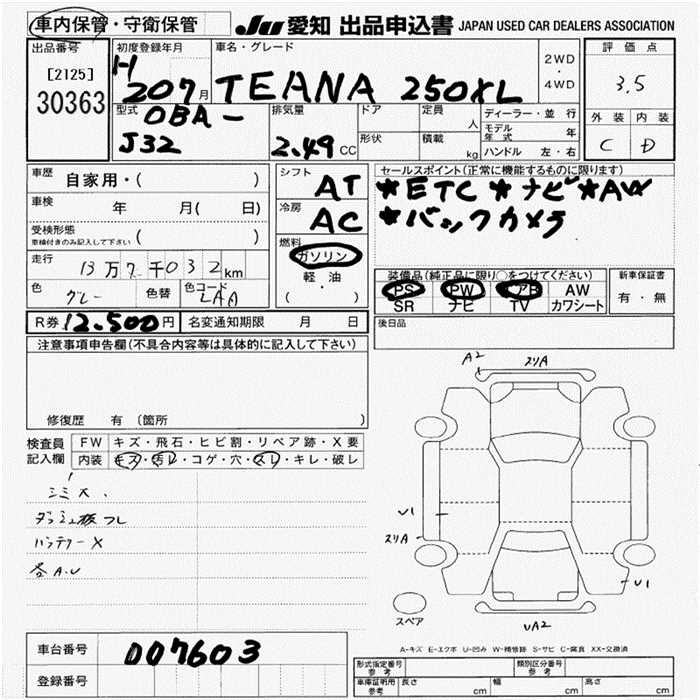 車内保管・守衛保管
JU 愛知 出品申込書 JAPAN USED CAR DEALERS ASSOCIATION
出品番号
[2125]
30363
初度登録年月
H
207月
車名・グレード
TEANA 250XL
2WD
・
4WD
評価点
3.5
外装 内装
C D
型式
OBA-
J32
排気量
2.49 CC
ドア
形状
定員
人
積載
kg
ディーラー・並行
モデル年式 年
ハンドル 左・右
車歴 自家用・( )
車検 年 月( 日)
受検形態
車検付きのみ記入して下さい ( )
走行 13万7千032km
色 グレー 色替 色コード LAA
シフト AT
冷房 AC
燃料
ガソリン
・
軽油
・
( )
セールスポイント(正常に機能するものに限ります)
*ETC *ナビ *AW
*バックカメラ
装備品(純正品に限り○をつけてください)
PS PW エアB AW
SR ナビ TV カワシート
新車保証書
有・無
R券 12,500円 名変通知期限 月 日
後日品
注意事項申告欄(不具合内容等は具体的に記入して下さい)
修復歴 有 〔箇所 〕
検査員記入欄
FW キズ・飛石・ヒビ割・リペア跡・X要
内装 キズ・汚レ・コゲ・穴・スレ・キレ・破レ
シミ大、
ダッシュ板フレ
バッテリーX
各A.U
A2 スリA
U1
スリA
U1
UA2
スペア
A-キズ E-エクボ U-凹み W-補修跡 S-サビ C-腐食 XX-交換済
車台番号 007603
登録番号
形式指定番号 参考
類別区分番号 参考
車庫証明用 参考 長さ cm 幅 cm 高さ cm